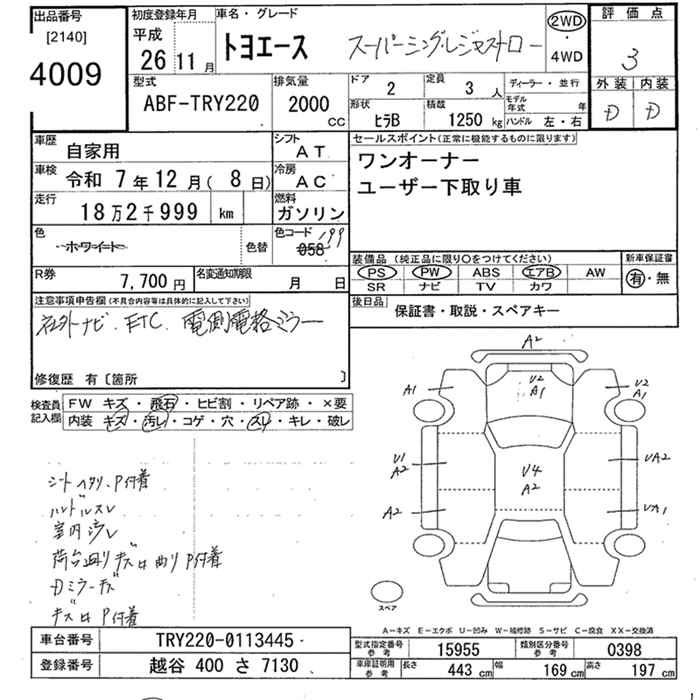 出品番号
[2140]
4009
初度登録年月
平成
26 11月
車名・グレード
トヨエース スーパーシングルジャストロー
2WD
・
4WD
評価点
3
外装 内装
D D
型式
ABF-TRY220
排気量
2000
CC
ドア
2
定員
3 人
ディーラー・並行
形状
ヒラB
積載
1250 kg
モデル年式 年
ハンドル 左・右
車歴
自家用
シフト
AT
車検
令和 7年12月(8日)
冷房
AC
走行
18万2千999 km
燃料
ガソリン
色
ホワイト
色替
色コード 199
058
セールスポイント(正常に機能するものに限ります)
ワンオーナー
ユーザー下取り車
装備品(純正品に限り〇をつけてください)
PS PW ABS エアB AW
SR ナビ TV カワ
新車保証書
有・無
R券
7,700円
名変通知期限
月 日
後日品
保証書・取説・スペアキー
注意事項申告欄(不具合内容等は具体的に記入して下さい)
社外ナビ.ETC. 電側電格ミラー
修復歴 有〔箇所 〕
検査員記入欄
FW キズ・飛石・ヒビ割・リペア跡・×要
内装 キズ・汚レ・コゲ・穴・スレ・キレ・破レ
シートヘタリ、P付着
ハンドルスレ
室内汚レ
荷台廻りキズサビ曲りP付着
Dミラーキズ
キズサビP付着
A2
A1
U2
A1
U2
A1
U1
A2
U4
A2
UA2
A2
UA1
スペア
A-キズ E-エクボ U-凹み W-補修跡 S-サビ C-腐食 XX-交換済
車台番号
TRY220-0113445
登録番号
越谷 400 さ 7130
型式指定番号
参考
15955
類別区分番号
参考
0398
車庫証明用
参考
長さ
443 cm
幅
169 cm
高さ
197 cm